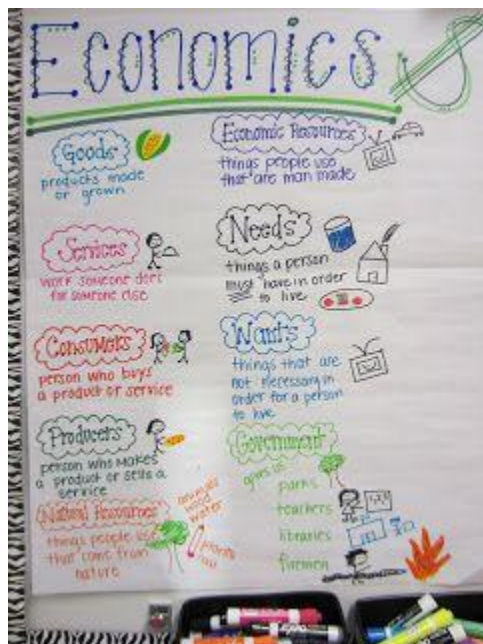 Economics
Goods
products made
or grown
Services
work someone does
for someone else
Consumers
person who buys
a product or service
Producers
person who makes
a product or sells a
service
Natural Resources
things people use
that come from
nature
animals
wood
water
plants
oil
Economic Resources
things people use
that are man made
Needs
things a person
must have in order
to live
Wants
things that are
not necessary in
order for a person
to live
Government
gives us:
parks
teachers
libraries
firemen
EXPO